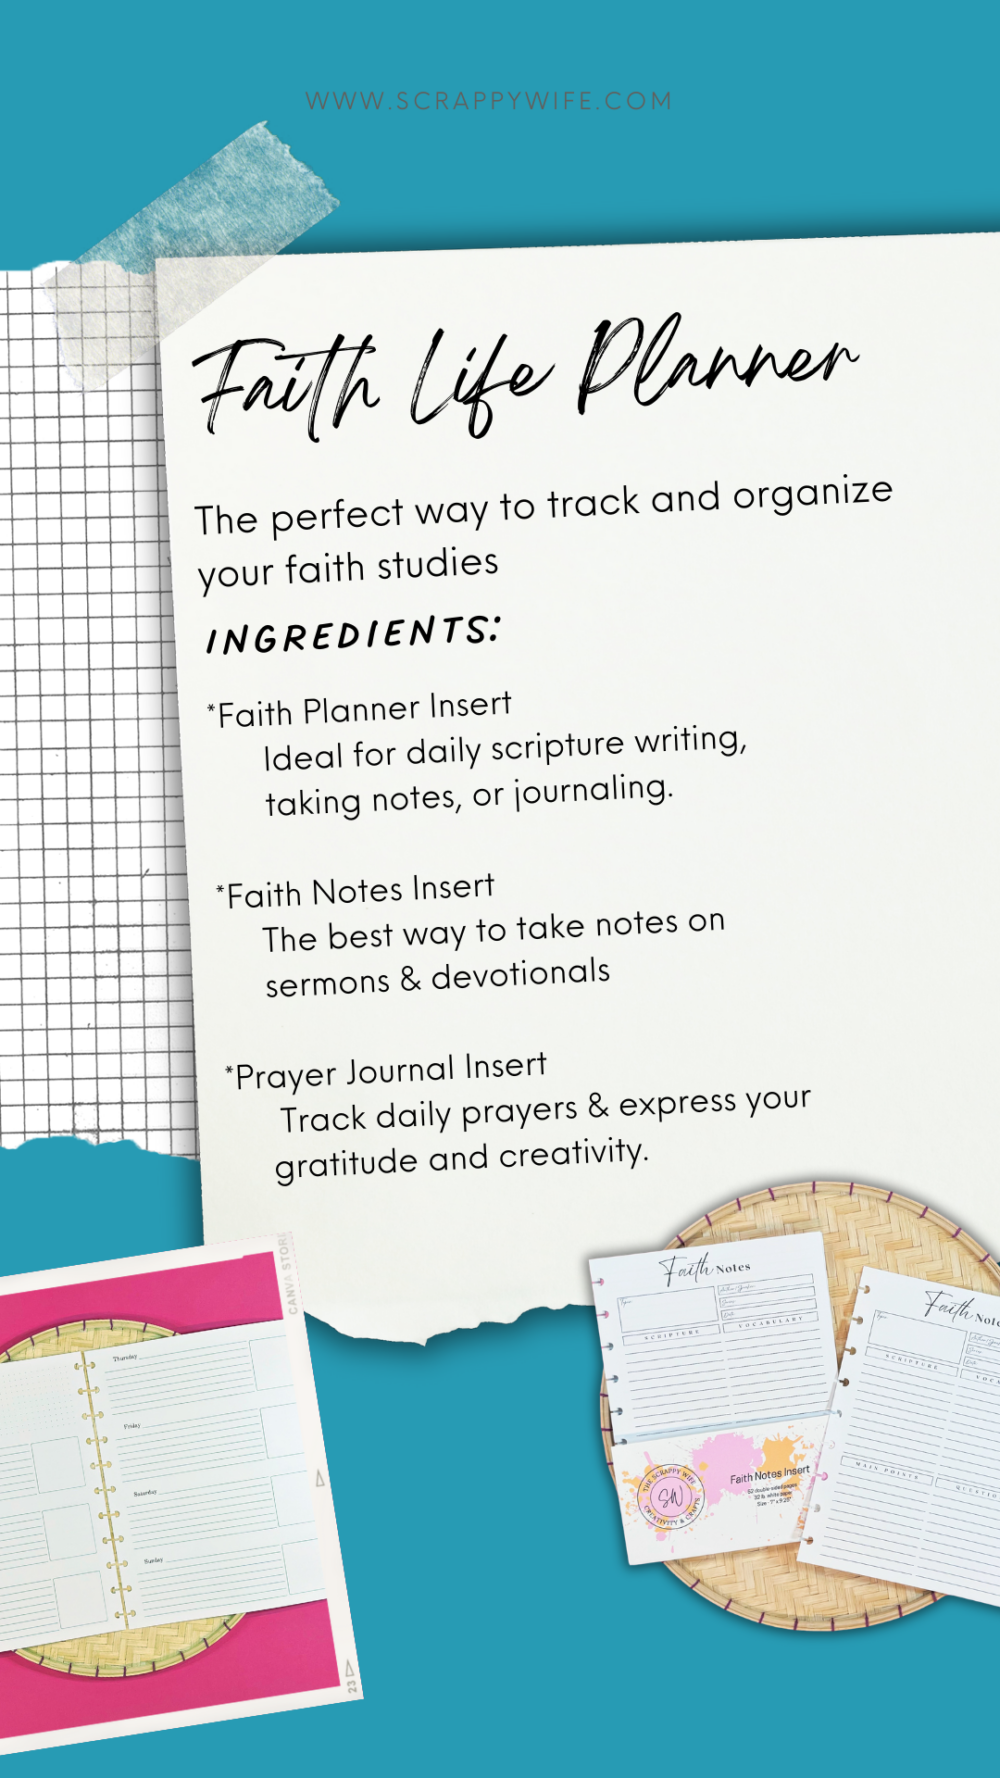 WWW.SCRAPPYWIFE.COM
Faith Life Planner
The perfect way to track and organize
your faith studies
INGREDIENTS:
*Faith Planner Insert
Ideal for daily scripture writing,
taking notes, or journaling.
*Faith Notes Insert
The best way to take notes on
sermons & devotionals
*Prayer Journal Insert
Track daily prayers & express your
gratitude and creativity.
CANVA STOR
Thursday
Friday
Saturday
Sunday
23
Faith Notes
SCRIPTURE
VOCABULARY
THE SCRAPPY WIFE
SW
CREATIVITY & CRAFTS
Faith Notes Insert
52 double-sided pages
32 lb. white paper
Size - 7" x 9.25"
Faith Note
SCRIPTURE
VOCA
MAIN POINTS
QUESTIO